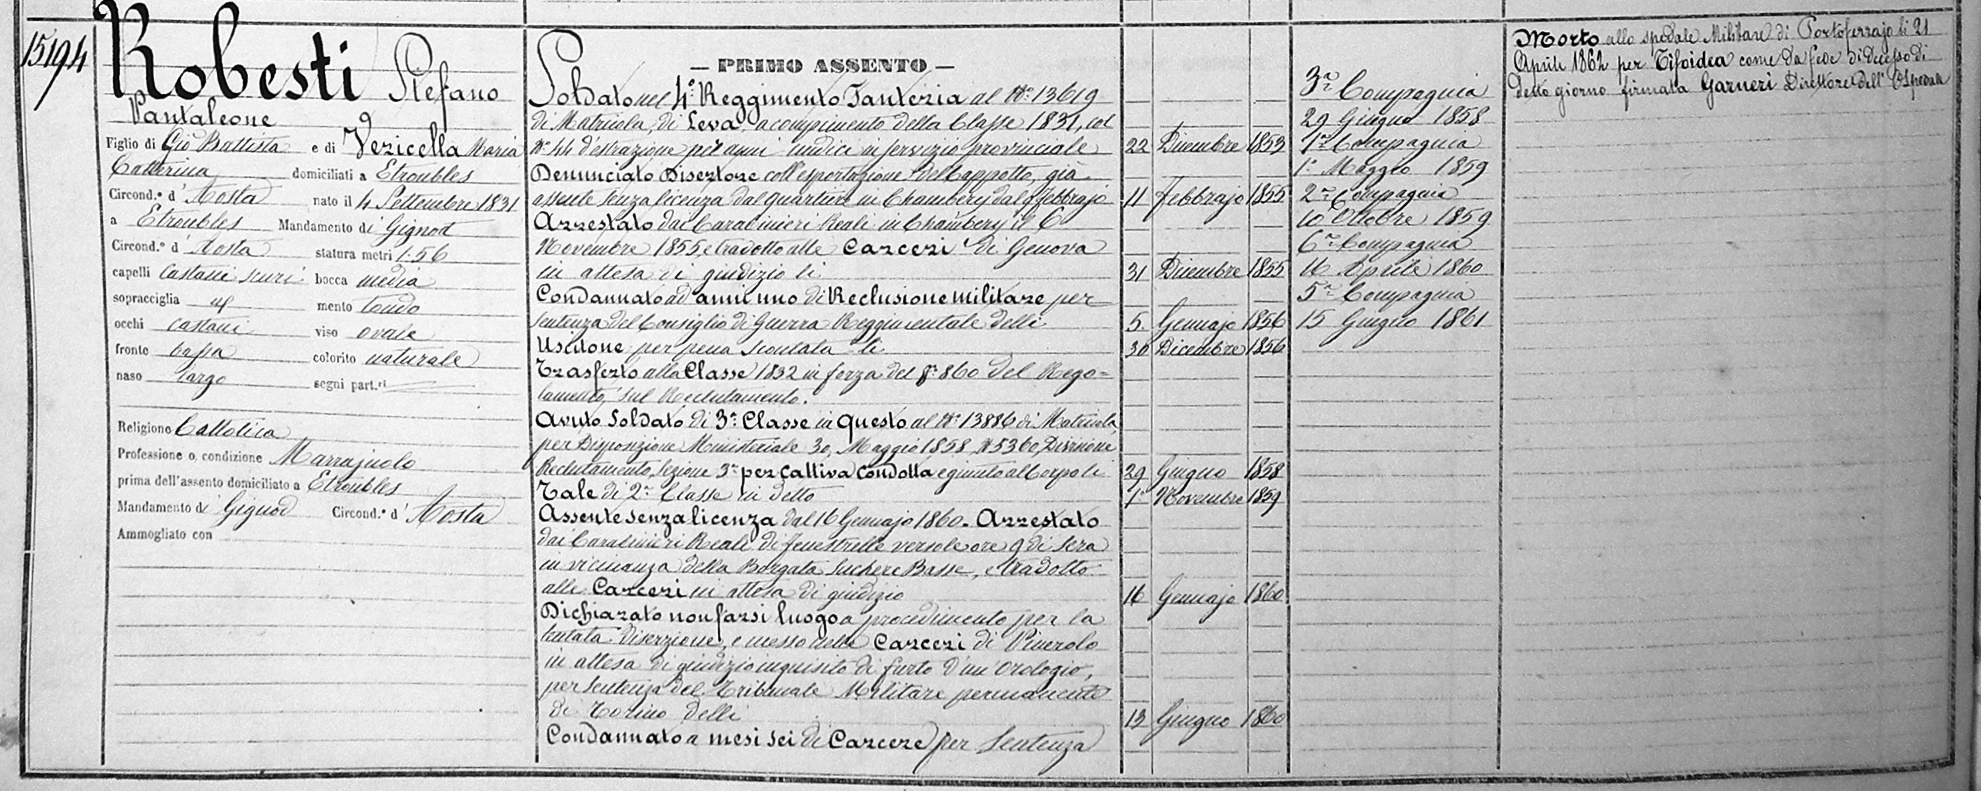 15194
Robesti Stefano
Pantaleone
Figlio di Gio Battista e di Vezicella Maria
Catterina domiciliati a Etroubles
Circond.º d' Aosta nato il 4 Settembre 1831
a Etroubles Mandamento di Gignod
Circond.º d' Aosta statura metri 1:56
capelli castani scuri bocca media
sopracciglia id mento tondo
occhi castani viso ovale
fronte bassa colorito naturale
naso largo segni part.ri
Religione Cattolica
Professione o condizione Marrajuolo
prima dell'assento domiciliato a Etroubles
Mandamento di Gignod Circond.º d' Aosta
Ammogliato con
— PRIMO ASSENTO —
Soldato nel 4º Reggimento Fanteria al Nº 13619
di Matricola, di Leva, a compimento della Classe 1831, col
Nº 44 d'estrazione per anni undici in servizio provinciale 22 Dicembre 1853
Denunciato Disertore coll'esportazione del cappotto, già
assente senza licenza dal quartiere in Chambery dal 9 febbrajo 11 Febbrajo 1855
Arrestato dai Carabinieri Reali in Chambery il 6
Novembre 1855, e tradotto alle Carceri di Genova
in attesa di giudizio li 31 Dicembre 1855
Condannato ad anni uno di Reclusione militare per
sentenza del Consiglio di Guerra Reggimentale delli 5 Gennajo 1856
Uscitone per pena scontata li 30 Dicembre 1856
Trasferto alla Classe 1832 in forza del § 860 del Rego=
lamento, sul Reclutamento.
Avuto Soldato di 3ª Classe in questo al Nº 13886 di Matricola
per Disposizione Ministeriale 30, Maggio 1858 Nº 5360, Divisione
Reclutamento, Sezione 3ª per cattiva condotta e giunto al Corpo li 29 Giugno 1858
Tale di 2ª Classe in detto 1º Novembre 1859
Assente senza licenza dal 16 Gennajo 1860. Arrestato
dai Carabinieri Reali di Fenestrelle verso le ore 9 di sera
in vicinanza della Borgata Suchere Basse, e tradotto
alle Carceri in attesa di giudizio 16 Gennajo 1860
Dichiarato non farsi luogo a procedimento per la
tentata diserzione, e messo nelle Carceri di Pinerolo
in attesa di giudizio inquisito di furto d'un Orologio,
per sentenza del Tribunale Militare permanente
di Torino delli 13 Giugno 1860
Condannato a mesi sei di Carcere per Sentenza
3ª Compagnia
29 Giugno 1858
1ª Compagnia
1º Maggio 1859
2ª Compagnia
10 Ottobre 1859
6ª Compagnia
16 Aprile 1860
5ª Compagnia
15 Giugno 1861
Morto allo spedale Militare di Portoferrajo li 21
Aprile 1862 per Tifoidea come da fede di decesso di
detto giorno firmata Garneri Direttore dell'Ospedale